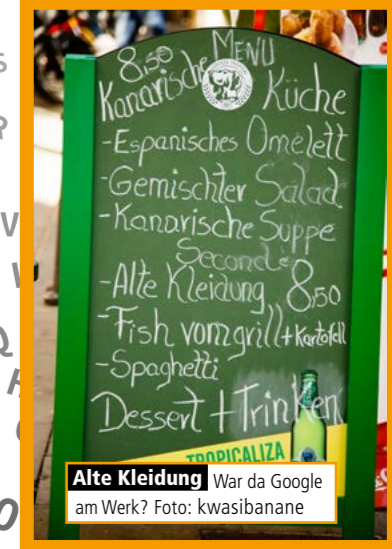 MENU
8,50
Kanarische Küche
-Espanisches Omelett
-Gemischter Salad
-Kanarische Suppe
Seconds
-Alte Kleidung 8,50
-Fish vom grill + Kartofell
-Spaghetti
Dessert + Trinken
TROPICALIZA
Alte Kleidung War da Google
am Werk? Foto: kwasibanane